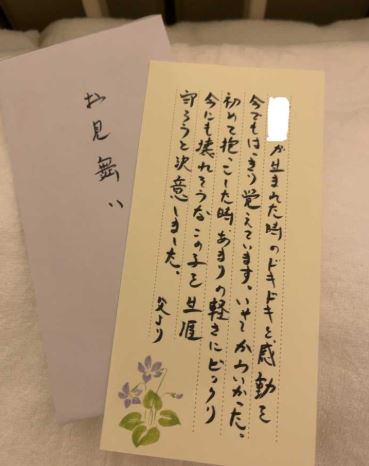 が生まれた時のドキドキと感動を
今でもはっきり覚えています。いやーかわいかった。
初めて抱っこした時あまりの軽さにビックリ
今にも壊れそうなこの子を生涯
守ろうと決意しました。 父より
お見舞い